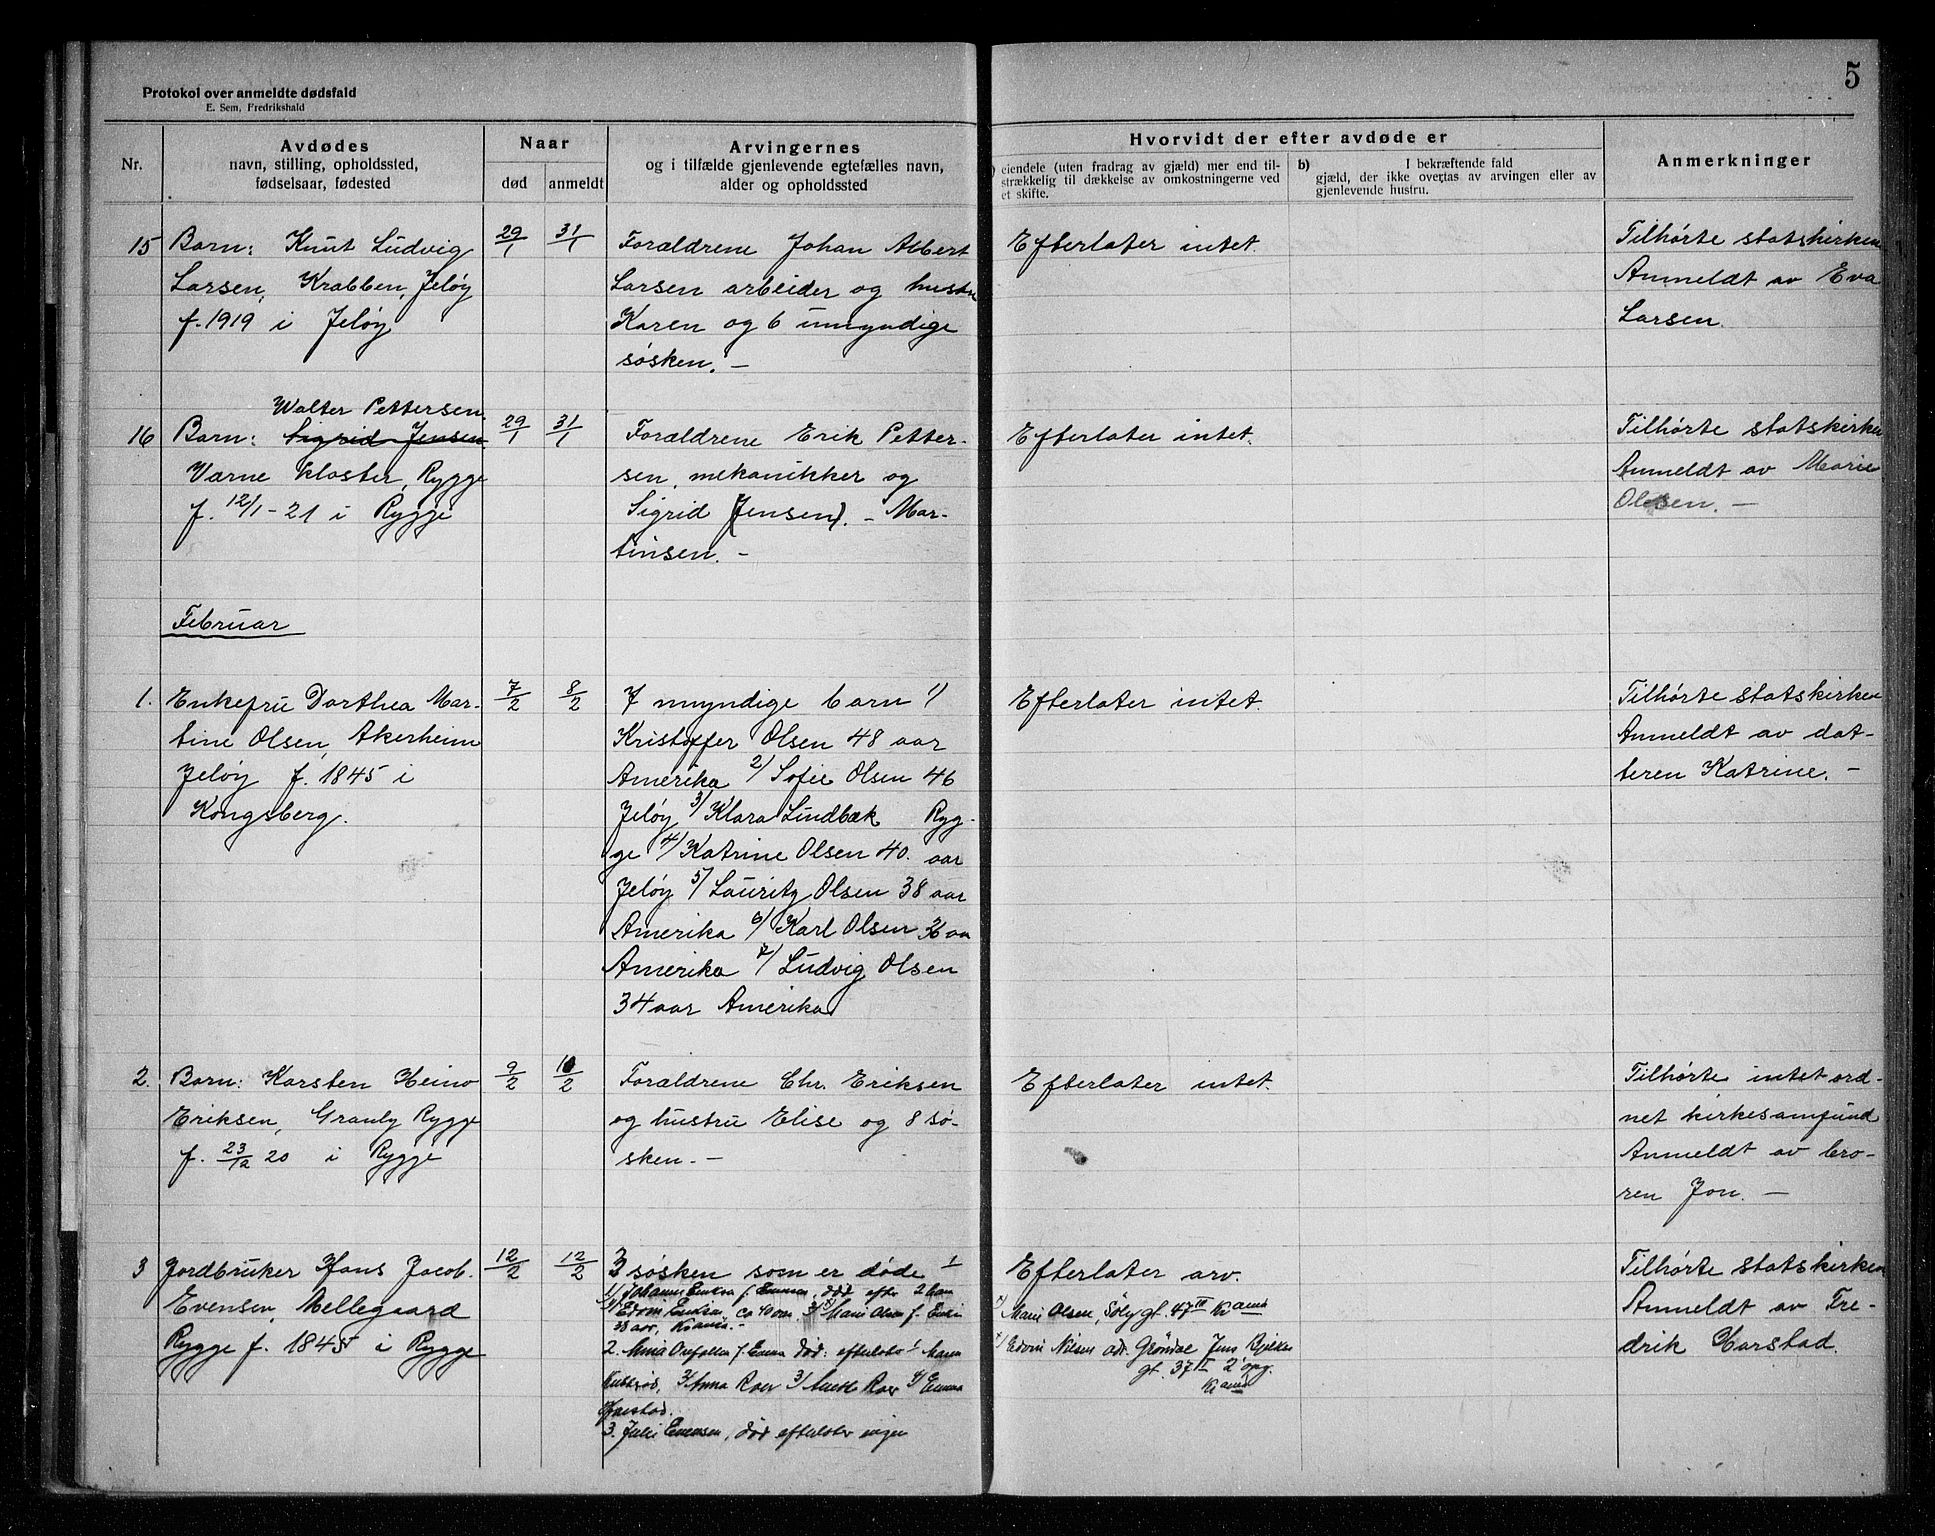 Protokol over anmeldte dødsfald
E. Sem, Fredrikshald
5
Nr.
Avdødes
navn, stilling, opholdssted,
fødselsaar, fødested
Naar
død
anmeldt
Arvingernes
og i tilfælde gjenlevende egtefælles navn,
alder og opholdssted
Hvorvidt der efter avdøde er
eiendele (uten fradrag av gjæld) mer end til-
strækkelig til dækkelse av omkostningerne ved
et skifte.
b) I bekræftende fald
gjæld, der ikke overtas av arvingen eller av
gjenlevende hustru.
Anmerkninger
15
Barn: Knut Ludvig
Larsen, Krabben, Jeløy
f. 1919 i Jeløy
29/1
31/1
Forældrene Johan Albert
Larsen arbeider og hustru
Karen og 6 umyndige
søsken. —
Efterlater intet.
Tilhørte statskirken
Anmeldt av Eva
Larsen.
16
Walter Pettersen.
Barn: Sigrid Jensen
Værne kloster, Rygge
f. 12/1 - 21 i Rygge
29/1
31/1
Forældrene Erik Petter-
sen, mekanikker og
Sigrid (Jensen). - Mar-
tinsen. —
Efterlater intet.
Tilhørte statskirken
Anmeldt av Marie
Olsen. —
Februar
1.
Enkefru Dorthea Mar-
tine Olsen, Akerheim
Jeløy f. 1845 i
Kongsberg.
7/2
8/2
7 myndige barn 1)
Kristoffer Olsen 48 aar
Amerika 2/ Sofie Olsen 46
Jeløy 3/ Klara Lindbæk Ryg-
ge 4/ Katrine Olsen 40. aar
Jeløy 5/ Lauritz Olsen 38 aar
Amerika 6/ Karl Olsen 36 aa
Amerika 7/ Ludvig Olsen
34 aar Amerika
Efterlater intet.
Tilhørte statskirken
Anmeldt av dat-
teren Katrine. —
2.
Barn: Karsten Heino
Eriksen, Granly Rygge
f. 23/12 20 i Rygge
9/2
10/2
Forældrene Chr. Eriksen
og hustru Elise og 8 sø-
sken. —
Efterlater intet.
Tilhørte intet ord-
net kirkesamfund
Anmeldt av bro-
ren Jon. —
3
Jordbruker Hans Jacob
Evensen, Mellegaard
Rygge f. 1845 i Rygge
12/2
12/2
3 søsken som er døde
1) Johanne f. Evensen, død efter 2 barn
Edvin ca 40 aar, Marie Olsen f.
38 aar, Kr.ania. -
2. f. Evens død: efterlater
Anna Roer
3. Julie Evensen, død efterlater ingen
Efterlater arv.
Marie Olsen, gt. 47 III Kr.ania
Edvin Nilsen adr. Grøndal Jens Bjelkes
gt. 37 II 2 opg.
Kr.ania
Tilhørte statskirken
Anmeldt av Fre-
drik Harstad.